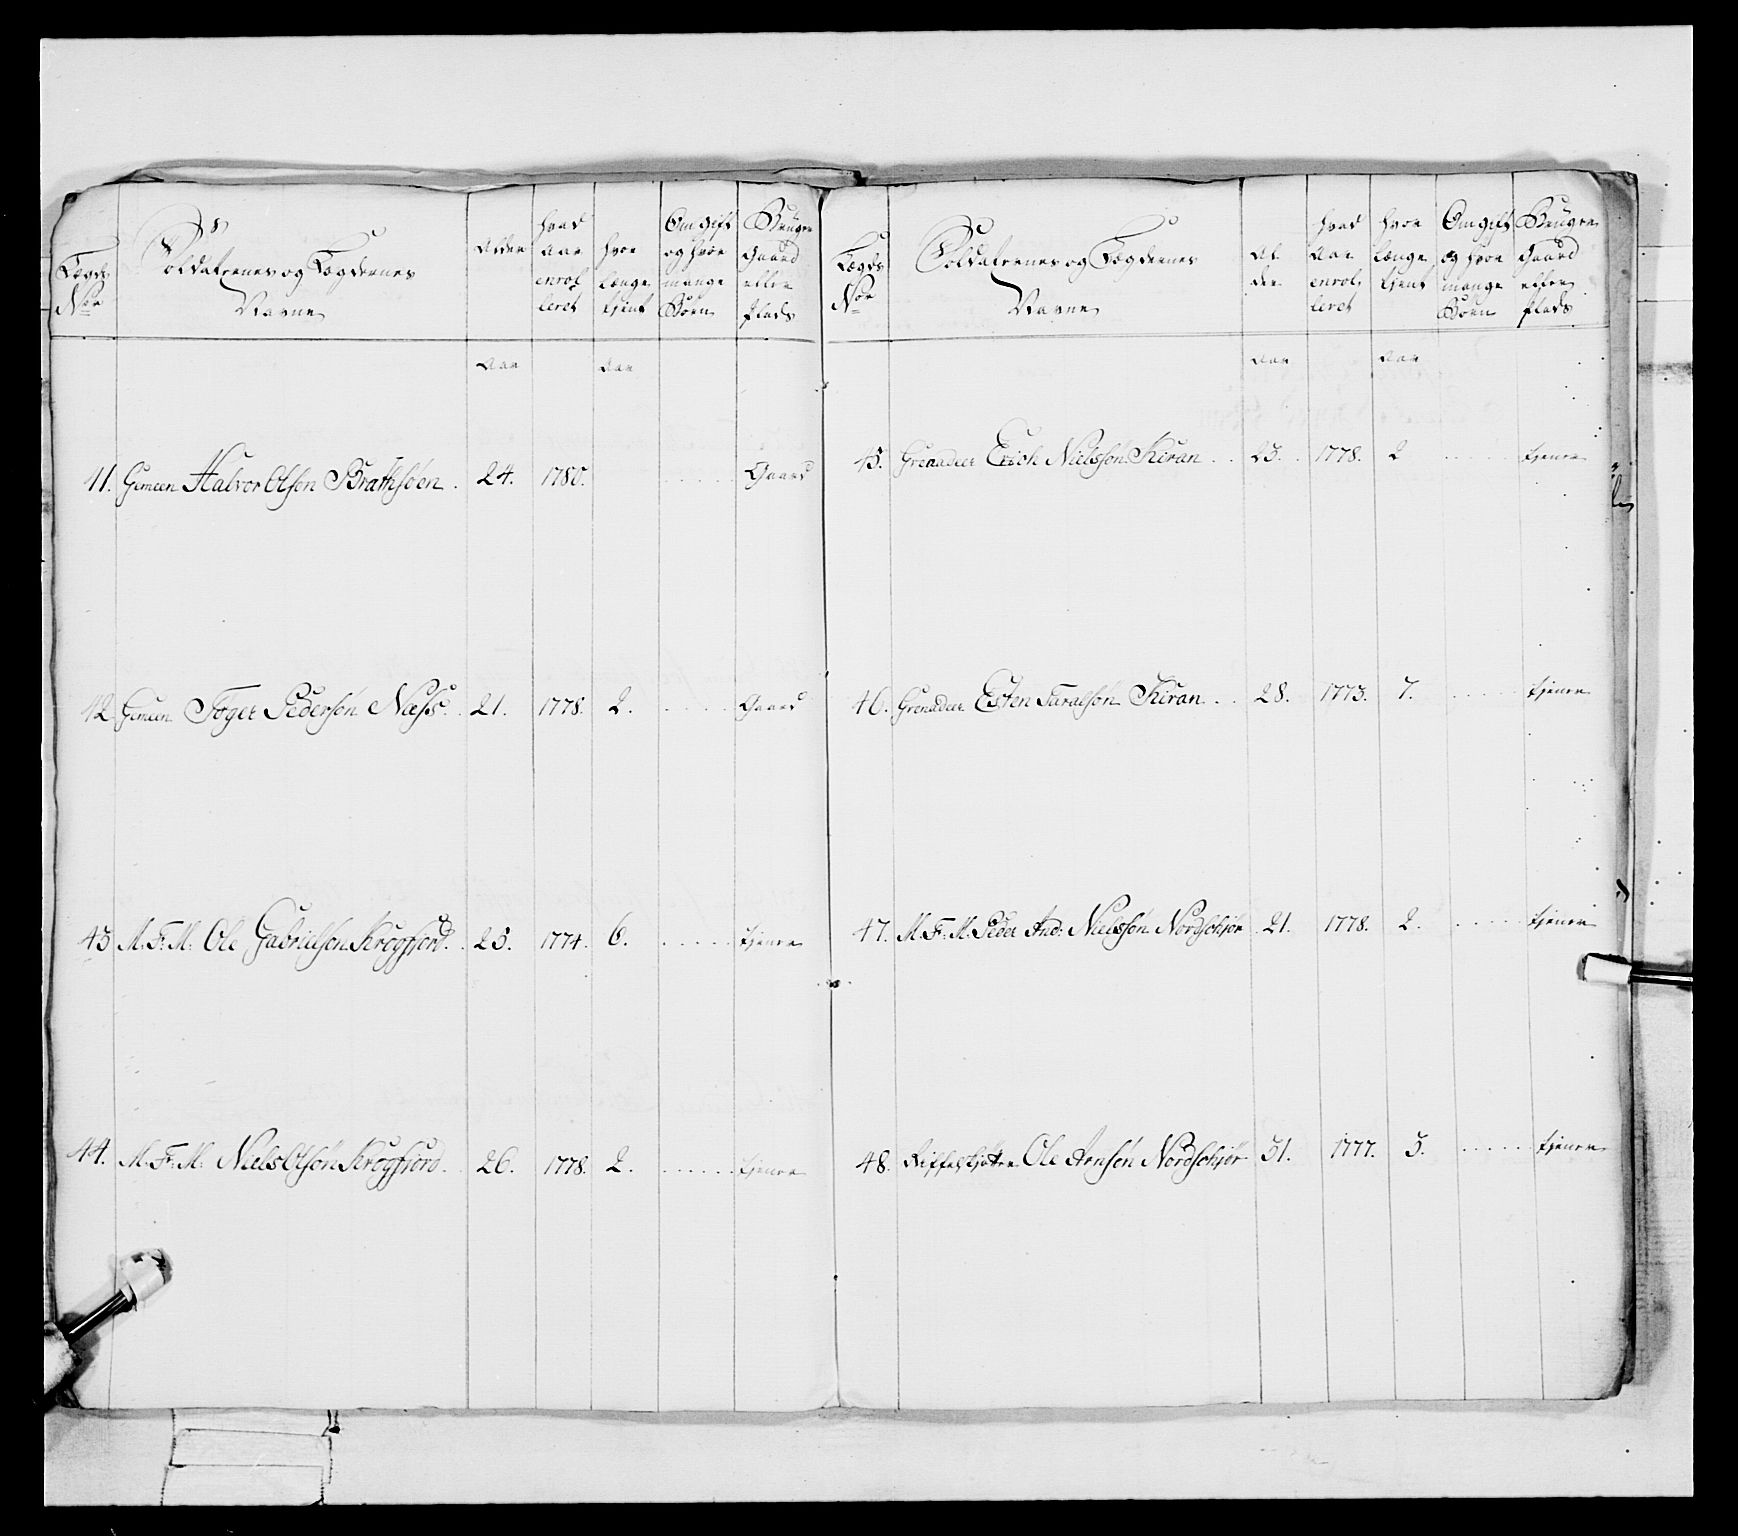 Lægds No
Soldaternes og Lægdernes Navne
Alder
hvad Aar enrolleret
hvor længe tjent
Om gift og hvor mange Børn
Bruger Gaard eller Plads
Aar Aar
41. Gemeen Halvor Olsøn Brathsøen . 24. 1780. Gaard
42 Gemeen Toger Pedersøn Næss . 21. 1778. 2. Gaard
43 M. F: M: Ole Gabrielsøn Krogfjord . 25. 1774. 6. tjener
44. M. F: M: Niels Olsøn Krogfjord . 26. 1778. 2. tjener
Lægds No
Soldaternes og Lægdernes Navne
Alder
hvad Aar enrolleret
hvor længe tjent
Om gift og hvor mange Børn
Bruger Gaard eller Plads
Aar Aar
45. Grenadeer Erich Nielssøn Kiran . . 23. 1778. 2 tjener
46. Grenadeer Esten Taraldsøn Kiran . . 28. 1773. 7. tjener
47. M. F: M. Peder And: Nielssøn Nordschiør 21. 1778. 2. tjener
48. Ole Arnsøn Nordschiør 31. 1777. 3. tjener